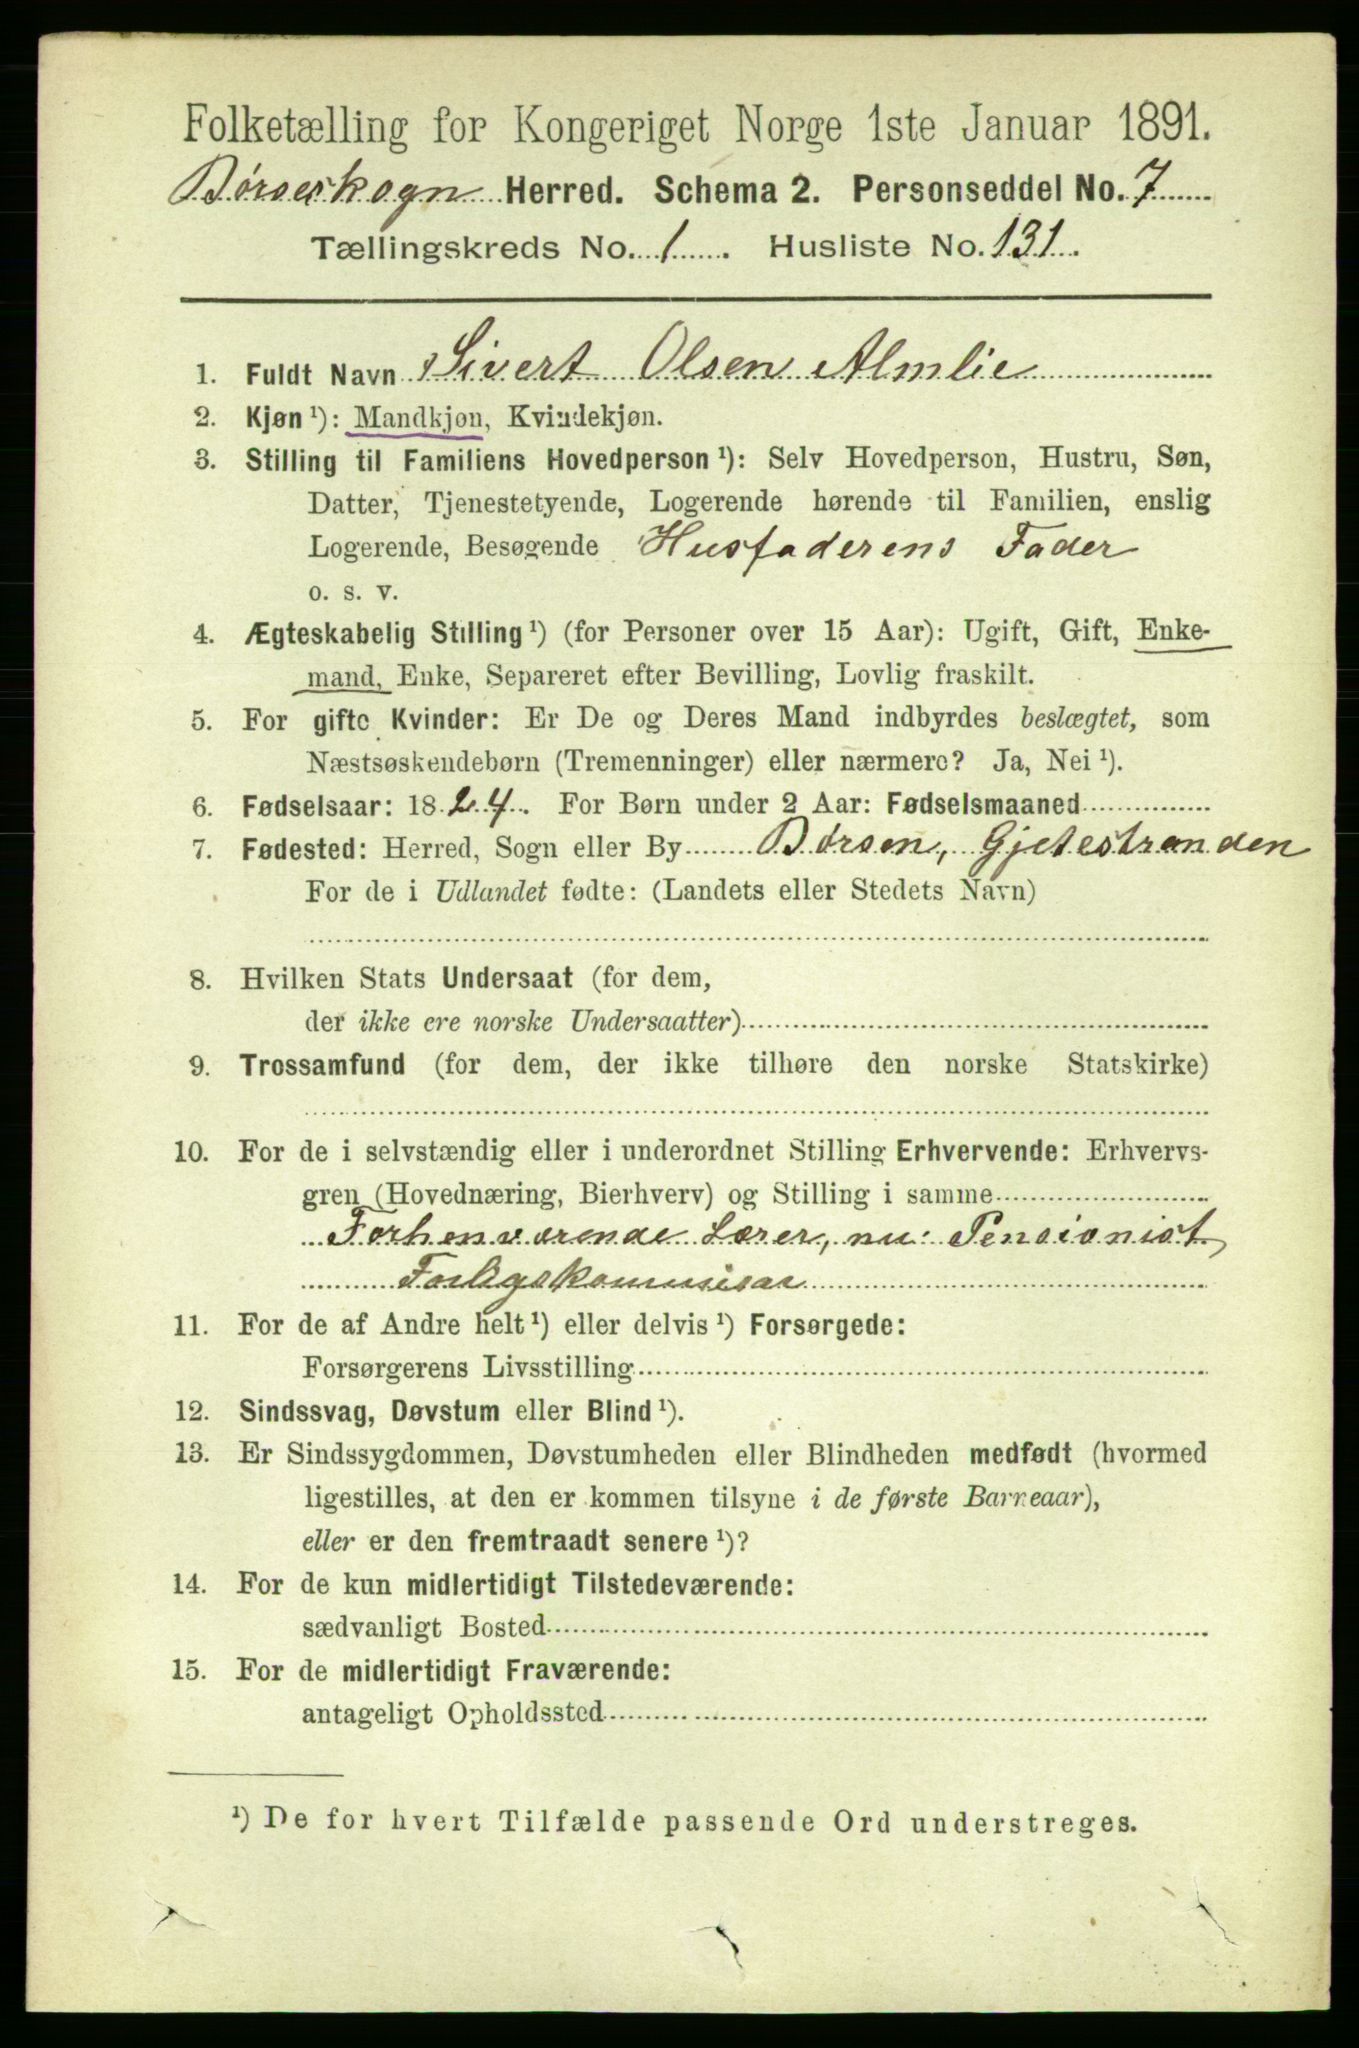 Folketælling for Kongeriget Norge 1ste Januar 1891.
Børseskogn Herred. Schema 2. Personseddel No. 7
Tællingskreds No. 1. Husliste No. 131.
1. Fuldt Navn Sivert Olsen Almlie
2. Kjøn ¹): Mandkjøn, Kvindekjøn.
3. Stilling til Familiens Hovedperson ¹): Selv Hovedperson, Hustru, Søn,
Datter, Tjenestetyende, Logerende hørende til Familien, enslig
Logerende, Besøgende Husfaderens Fader
o. s. v.
4. Ægteskabelig Stilling ¹) (for Personer over 15 Aar): Ugift, Gift, Enke-
mand, Enke, Separeret efter Bevilling, Lovlig fraskilt.
5. For gifte Kvinder: Er De og Deres Mand indbyrdes beslægtet, som
Næstsøskendebørn (Tremenninger) eller nærmere? Ja, Nei ¹).
6. Fødselsaar: 1824. For Børn under 2 Aar: Fødselsmaaned
7. Fødested: Herred, Sogn eller By Børsen, Gjetestranden
For de i Udlandet fødte: (Landets eller Stedets Navn)
8. Hvilken Stats Undersaat (for dem,
der ikke ere norske Undersaatter)
9. Trossamfund (for dem, der ikke tilhøre den norske Statskirke)
10. For de i selvstændig eller i underordnet Stilling Erhvervende: Erhvervs-
gren (Hovednæring, Bierhverv) og Stilling i samme
Forhenværende Lærer, nu: Pensionist,
Forligskommissar
11. For de af Andre helt ¹) eller delvis ¹) Forsørgede:
Forsørgerens Livsstilling
12. Sindssvag, Døvstum eller Blind ¹).
13. Er Sindssygdommen, Døvstumheden eller Blindheden medfødt (hvormed
ligestilles, at den er kommen tilsyne i de første Barneaar),
eller er den fremtraadt senere ¹)?
14. For de kun midlertidigt Tilstedeværende:
sædvanligt Bosted
15. For de midlertidigt Fraværende:
antageligt Opholdssted
¹) De for hvert Tilfælde passende Ord understreges.